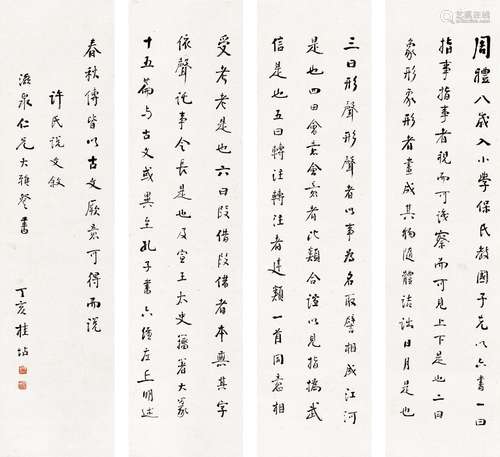 周禮八歲入小學保氏教國子先以六書一曰
指事指事者視而可識察而可見上下是也二曰
象形象形者畫成其物隨體詰詘日月是也
三曰形聲形聲者以事為名取譬相成江河
是也四曰會意會意者比類合誼以見指撝武
信是也五曰轉注轉注者建類一首同意相
受考老是也六曰叚借叚借者本無其字
依聲託事令長是也及宣王大史籀著大篆
十五篇与古文或異至孔子書六經左丘明述
春秋傳皆以古文厥意可得而說
許氏說文敘
泉仁兄大雅書
丁亥桂坫